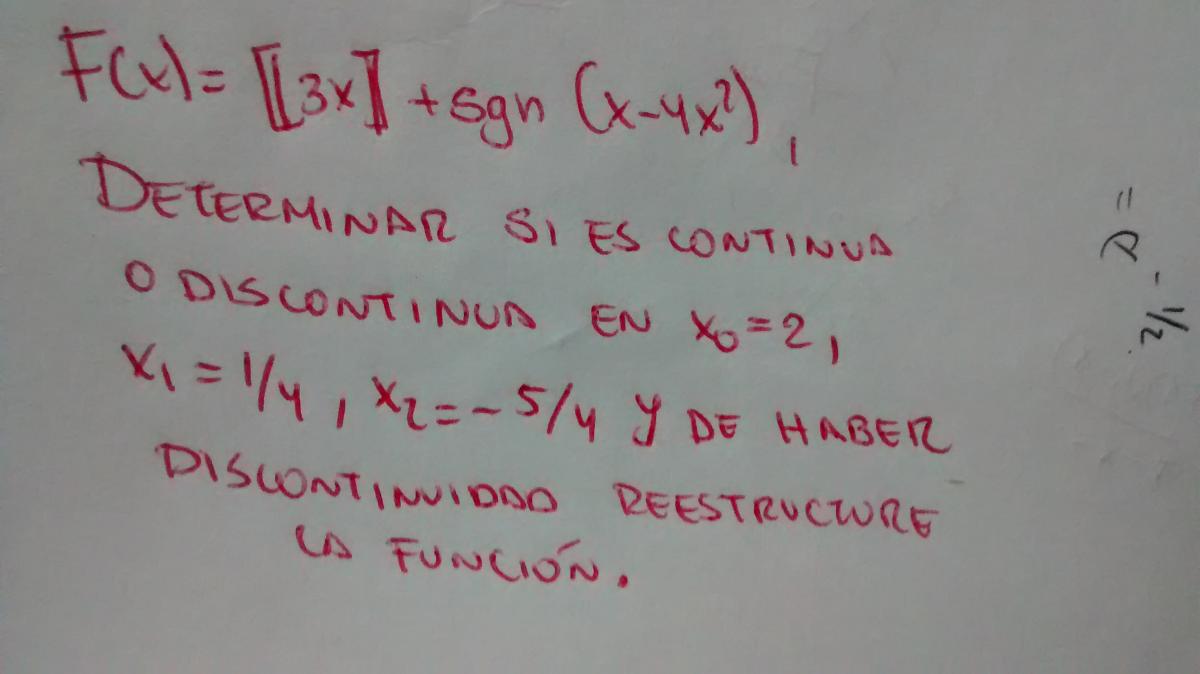 F(x) = ⟦3x⟧ + sgn (x-4x²),
DETERMINAR SI ES CONTINUA
O DISCONTINUA EN x₀ = 2,
x₁ = 1/4, x₂ = -5/4 y DE HABER
DISCONTINUIDAD REESTRUCTURE
LA FUNCIÓN.